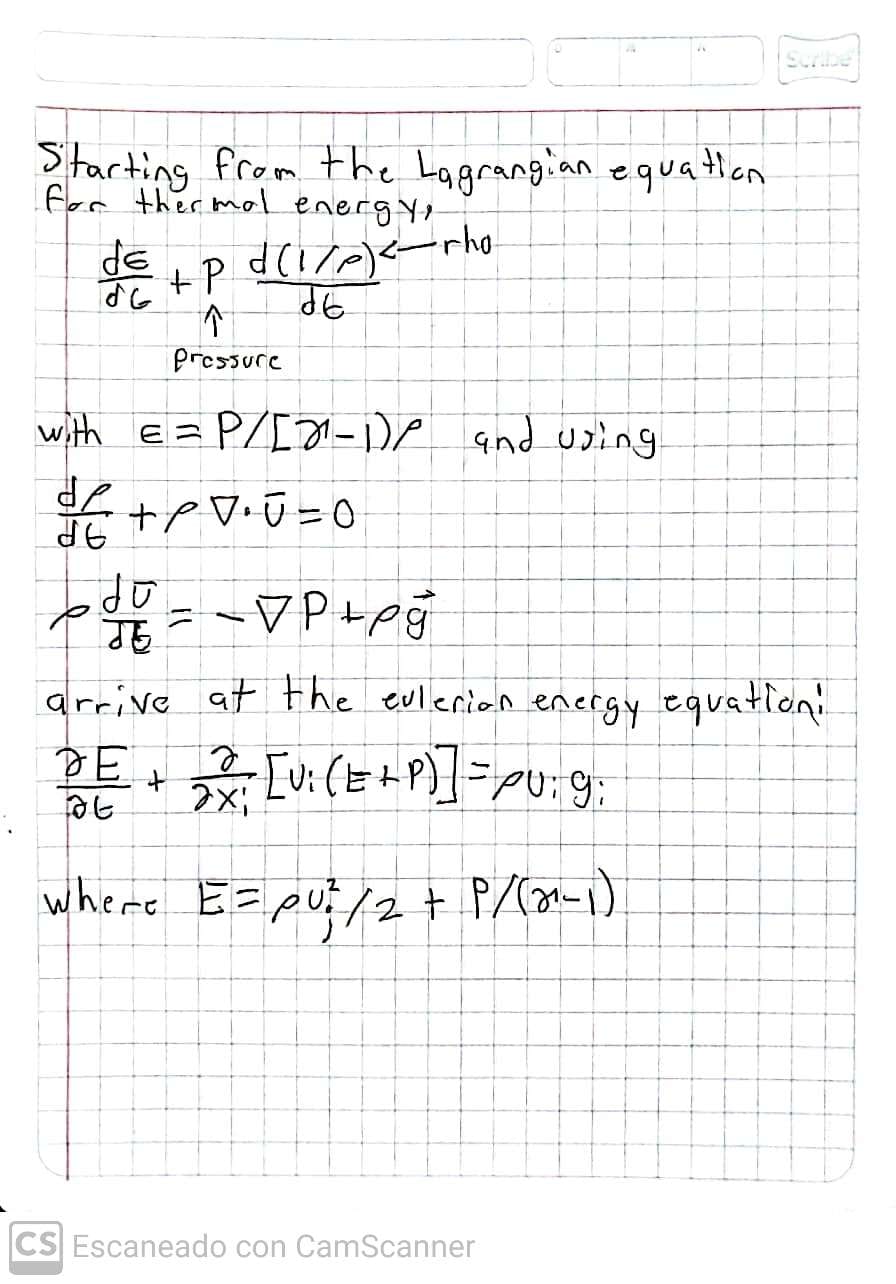 Scribe
Starting from the Lagrangian equation
for thermal energy,
dϵ/dt + P d(1/ρ)/dt ← rho
↑
pressure
with ϵ = P/[γ-1)ρ and using
dρ/dt + ρ ∇·Ū = 0
ρ dū/dt = -∇P + ρg⃗
arrive at the eulerian energy equation:
∂E/∂t + ∂/∂xᵢ [Uᵢ(E+P)] = ρUᵢgᵢ
where E = ρUⱼ²/2 + P/(γ-1)
CS Escaneado con CamScanner